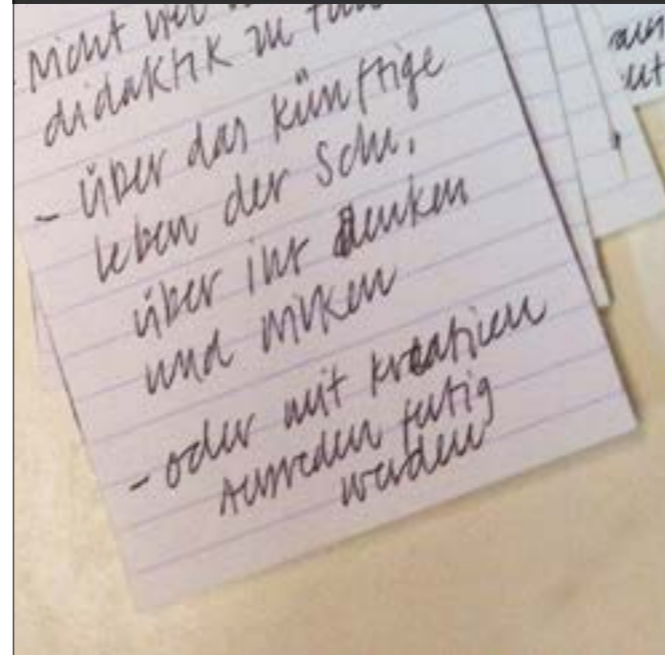 - Nicht
didaktik zu
- über das künftige
leben der Schu.
über ihr denken
und wirken
- oder mit kreativen
Ausreden fertig
werden